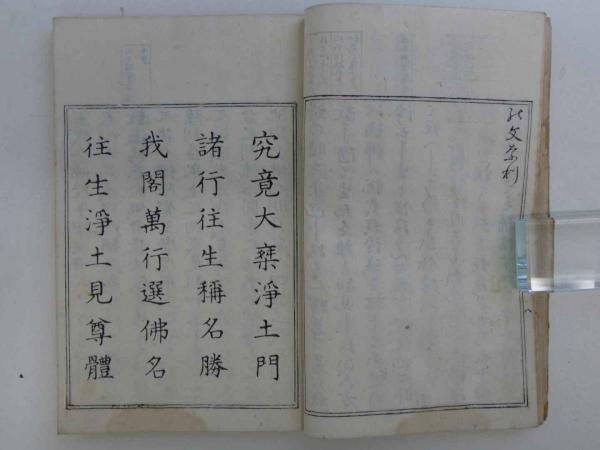 究竟大乗淨土門
諸行往生稱名勝
我閣萬行選佛名
往生淨土見尊體